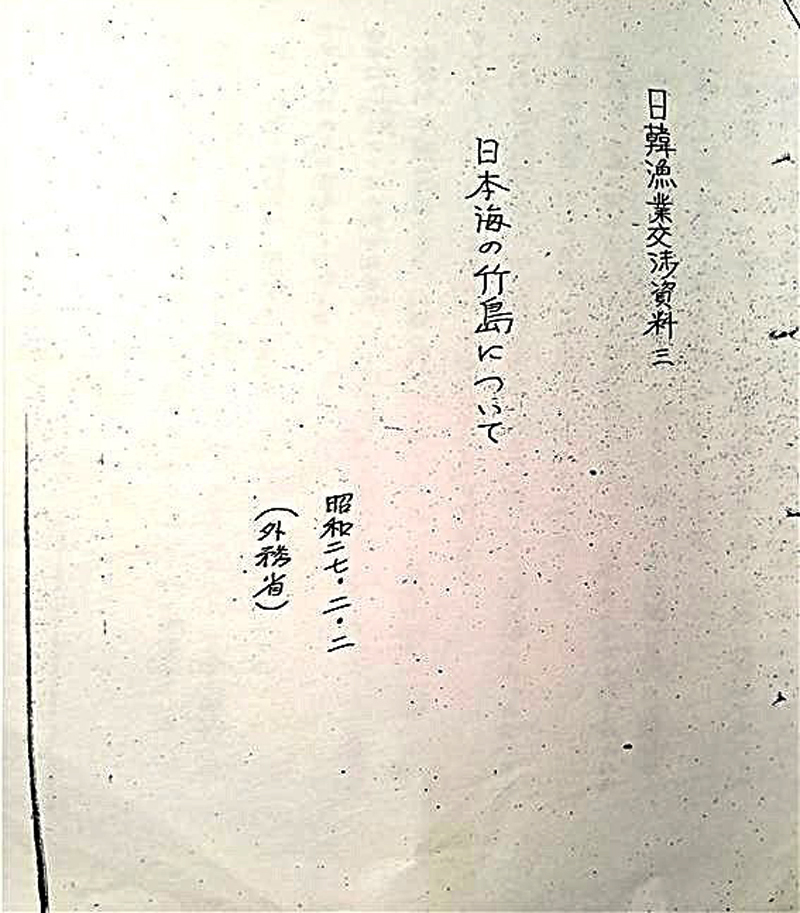 日韓漁業交渉資料三
日本海の竹島について
昭和二七・二・二
（外務省）